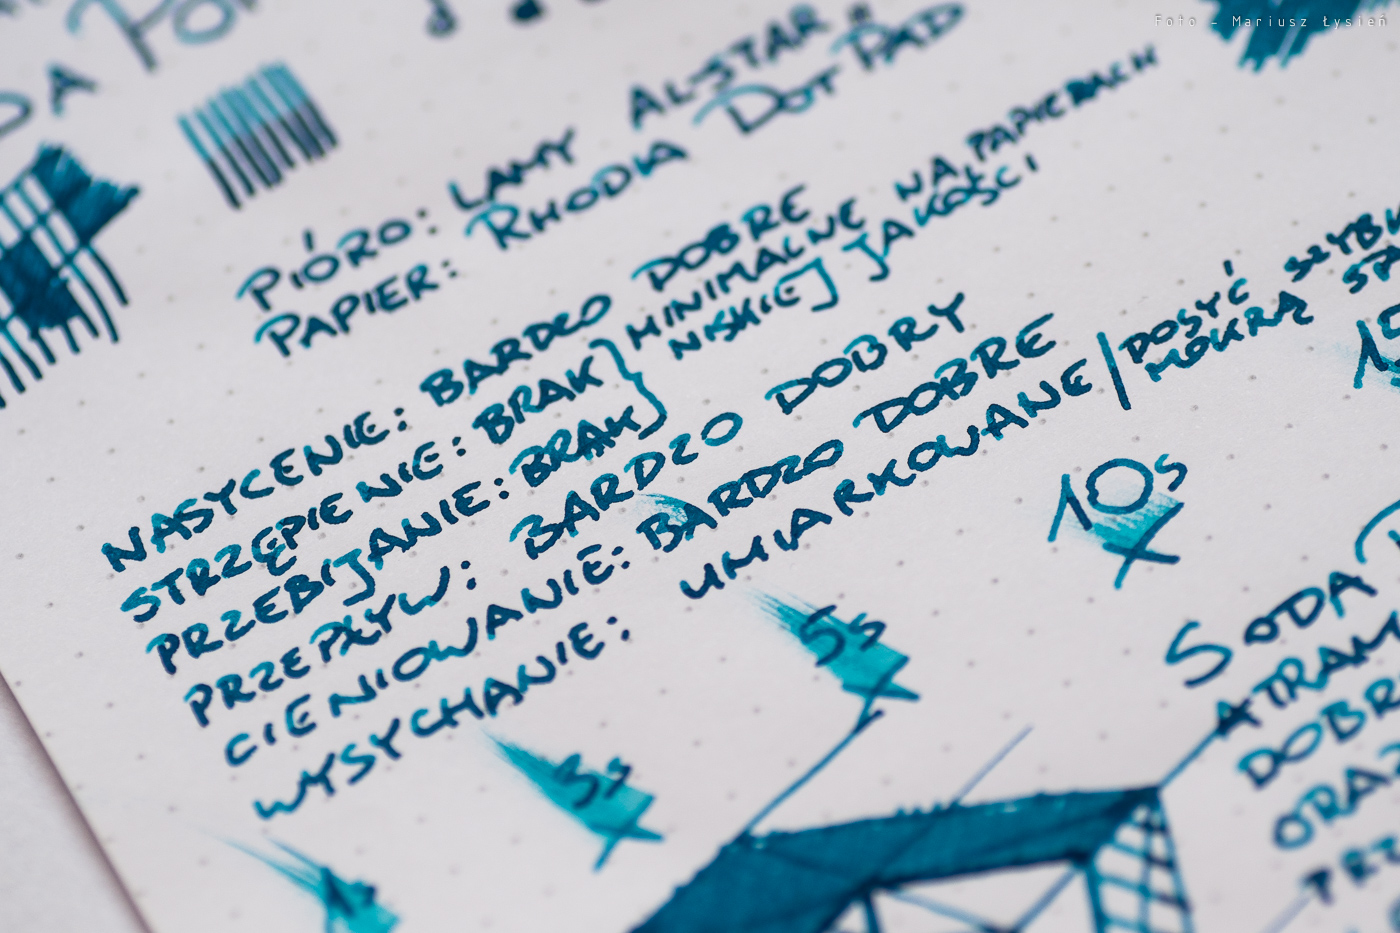 Foto - Mariusz Łysień
PIÓRO: LAMY AL-STAR
PAPIER: RHODIA DOT PAD
NASYCENIE: BARDZO DOBRE
STRZĘPIENIE: BRAK } MINIMALNE NA PAPIERACH
PRZEBIJANIE: BRAK } NISKIEJ JAKOŚCI
PRZEPŁYW: BARDZO DOBRY
CIENIOWANIE: BARDZO DOBRE
WYSYCHANIE: UMIARKOWANE / DOSYĆ
MOKRĄ
10s
5s
3s
SODA
DOBR
ORAZ
PRZ